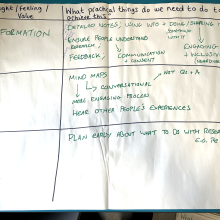 ght/feeling/ What practical things do we need to do t
Value achieve this
FORMATION DETAILED NOTES, USING INFO + DONE/SHARING
ENSURE PEOPLE UNDERSTAND
RESEARCH, ENGAGING
FEEDBACK, COMMUNICATION + INCLUSIV
+ CONSENT
MIND MAPS NOT Q's + A
CONVERSATIONAL
MORE ENGAGING PROCESS
HEAR OTHER PEOPLE'S EXPERIENCES
PLAN EARLY ABOUT WHAT TO DO WITH RESEA
E.G. Pe